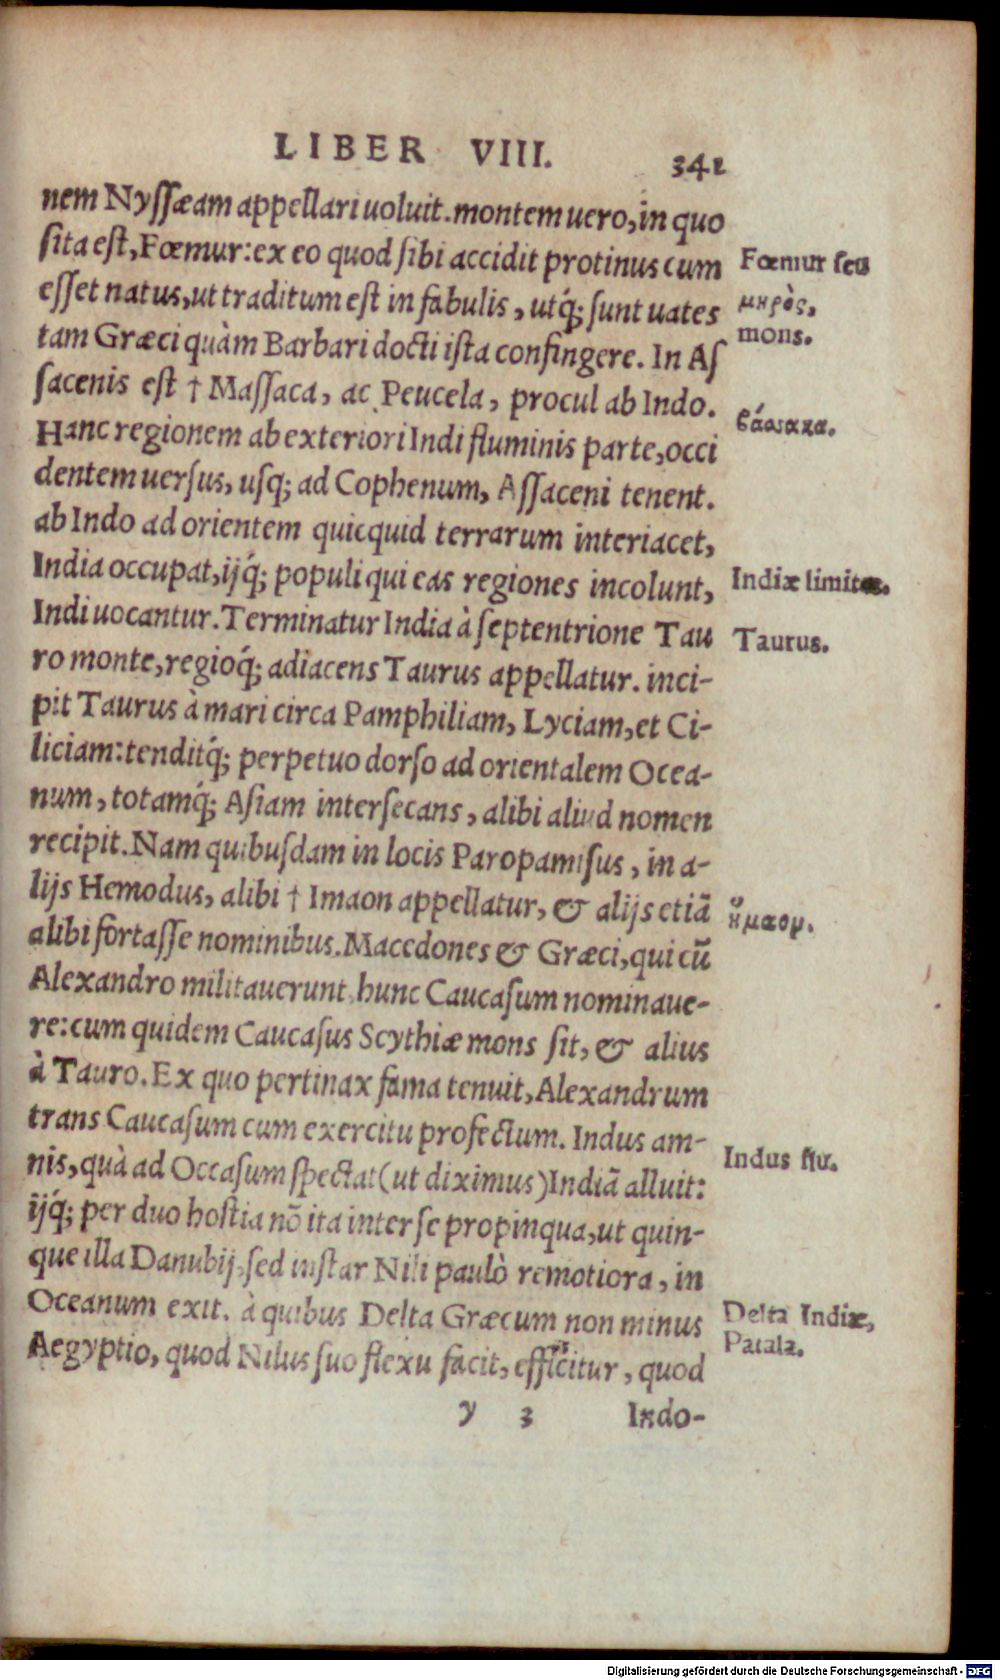 LIBER VIII. 341
nem Nyſſæam appellari uoluit. montem uero, in quo
ſita eſt, Fœmur: ex eo quod ſibi accidit protinus cum
eſſet natus, ut traditum eſt in fabulis, utq́; ſunt uates
tam Græci quàm Barbari docti iſta confingere. In Aſ
ſacenis eſt † Maſſaca, ac Peucela, procul ab Indo.
Hanc regionem ab exteriori Indi fluminis parte, occi
dentem uerſus, uſq; ad Cophenum, Aſſaceni tenent.
ab Indo ad orientem quicquid terrarum interiacet,
India occupat, ijq́; populi qui eas regiones incolunt,
Indi uocantur. Terminatur India à ſeptentrione Tau
ro monte, regioq́; adiacens Taurus appellatur. inci-
pit Taurus à mari circa Pamphiliam, Lyciam, et Ci-
liciam: tenditq́; perpetuo dorſo ad orientalem Ocea-
num, totamq́; Aſiam interſecans, alibi aliud nomen
recipit. Nam quibuſdam in locis Paropamiſus, in a-
lijs Hemodus, alibi † Imaon appellatur, & alijs etiã
alibi fortaſſe nominibus. Macedones & Græci, qui cũ
Alexandro militauerunt, hunc Caucaſum nominaue-
re: cum quidem Caucaſus Scythiæ mons ſit, & alius
à Tauro. Ex quo pertinax fama tenuit, Alexandrum
trans Caucaſum cum exercitu profectum. Indus am-
nis, quà ad Occaſum ſpectat (ut diximus) Indiã alluit:
ijq́; per duo hoſtia nõ ita inter ſe propinqua, ut quin-
que illa Danubij, ſed inſtar Nili paulò remotiora, in
Oceanum exit. à quibus Delta Græcum non minus
Aegyptio, quod Nilus ſuo flexu facit, efficitur, quod
y 3 Indo-
Fœmur ſeu
μηρὸς,
mons.
Indiæ limites.
Taurus.
ἤμαον.
Indus flu.
Delta Indiæ,
Patala.
Digitalisierung gefördert durch die Deutsche Forschungsgemeinschaft - DFG